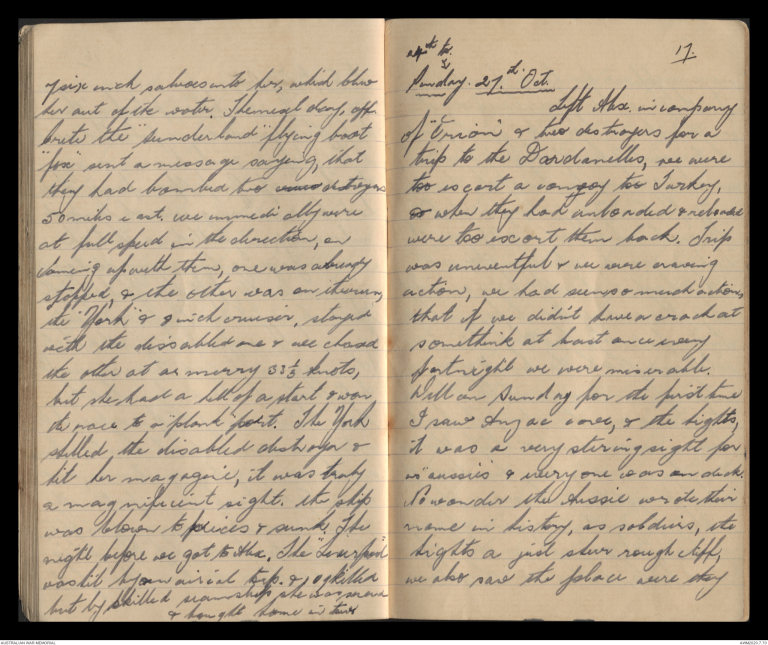 7 six inch salvoes into her, which blew
her out of the water. The next day, off
Crete the "Sunderland" flying boat
"fox" sent a message saying, that
they had bombed two destroyers
50 miles east, we immediatly were
at full speed in the direction, on
coming up with them, one was already
stopped, & the other was on the run,
the "York" a 8 inch cruiser, stayed
with the dissabled one & we chased
the other at as merry 33½ knots,
but she had a hell of a start & won
the race to a port. The York
shelled the disabled destroyer &
hit her magazine, it was truly
a magnificient sight. the ship
was blown to peices & sunk. The
night before we got to Alex. The "Liverpool"
was hit by an airial torp. & killed
but by skilled seamanship she was saved
& bought home in tow
24th to
17.
Sunday. 27th Oct.
Left Alex. in company
of "Orion" & two destroyers for a
trip to the Dardanelles, we were
too escort a convoy too Turkey,
& when they had unloaded & reloaded
were too escort them back. Trip
was uneventful & we were craving
action, we had seen so much action,
that if we didn't have a crack at
somethink at least once every
fortnight we were miserable.
Well on Sunday for the first time
I saw Anzac cove, & the hights,
it was a very stiring sight for
us "aussies" & every one was on deck.
No wonder the Aussie wrote their
name in history, as soldiers, the
hights a just sheer rough cliff,
we also saw the place were they
AUSTRALIAN WAR MEMORIAL